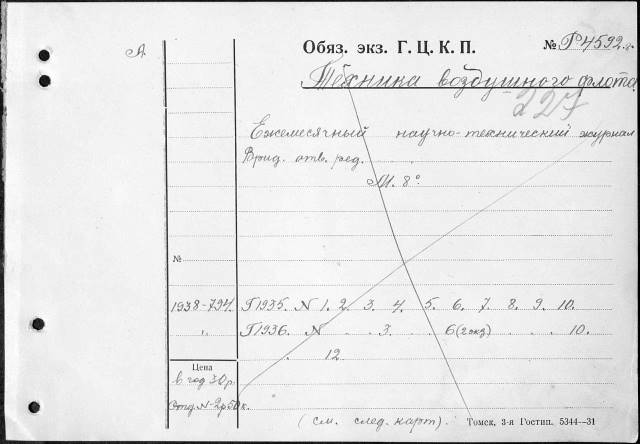 А
Обяз. экз. Г. Ц. К. П. № Р4592
Техника воздушного флота
227
Ежемесячный научно-технический журнал
Врид. отв. ред.
М. 8°
№
1938-794. Г1935. N 1. 2. 3. 4. 5. 6. 7. 8. 9. 10.
" Г1936. N . . 3. . 6(2экз) . . . 10.
. 12
Цена
в год 30 р.
Отд N-2р50к.
(см. след. карт). Томск, 3-я Гостип. 5344—31